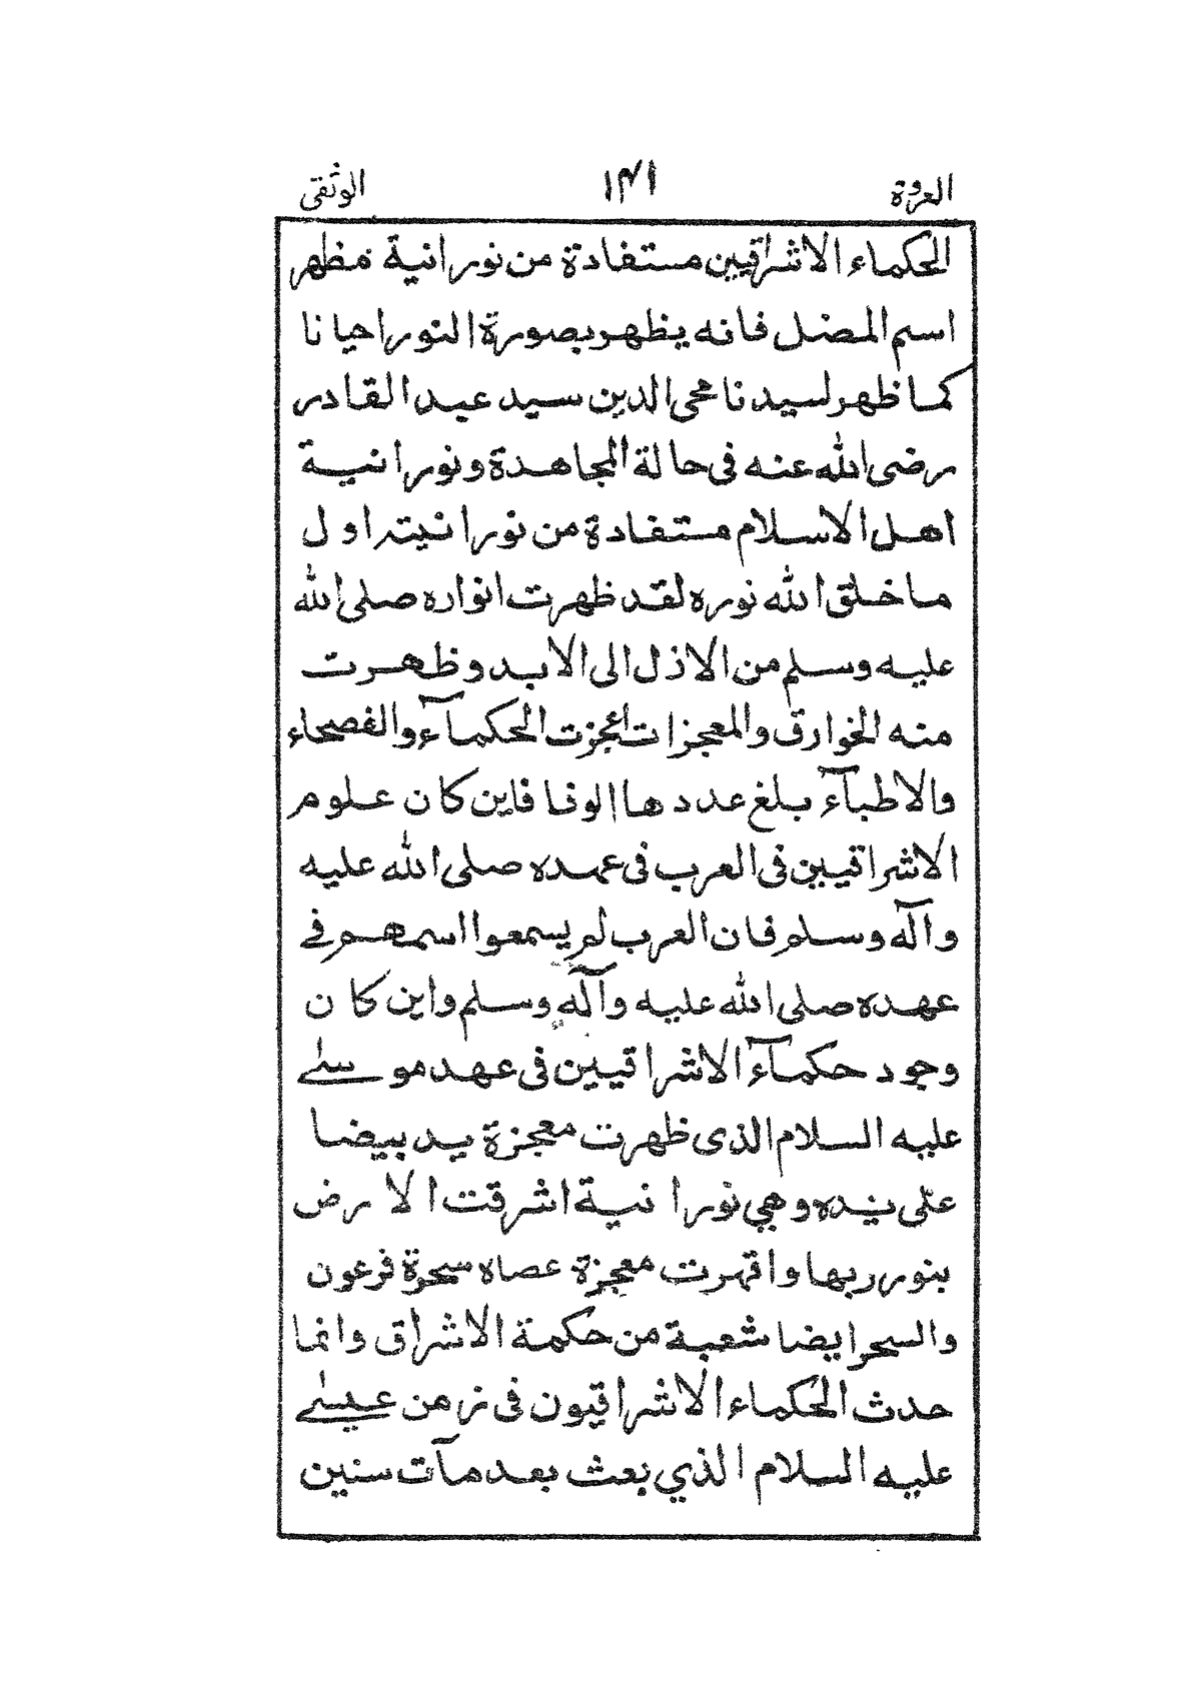 العروة ١٣١ الوثقى
الحكماء الاشراقيين مستفادة من نورانية مظهر
اسم المضل فانه يظهر بصورة النور احيانا
كما ظهر لسيدنا محى الدين سيد عبد القادر
رضى الله عنه فى حالة المجاهدة ونورانية
اهل الاسلام مستفادة من نورانيته اول
ما خلق الله نوره لقد ظهرت انواره صلى الله
عليه وسلم من الازل الى الابد وظهرت
منه الخوارق والمعجزات اعجزت الحكمآء والفصحاء
والاطبآء بلغ عددها الوفا فاين كان علوم
الاشراقيين فى العرب فى عهده صلى الله عليه
وآله وسلم فان العرب لم يسمعوا اسمهم فے
عهده صلى الله عليه وآله وسلم واين كان
وجود حكمآء الاشراقيين فى عهد موسٰے
عليه السلام الذى ظهرت معجزة يد بيضا
على يده وهي نورانية اشرقت الارض
بنور ربها واقهرت معجزة عصاه سحرة فرعون
والسحر ايضا شعبة من حكمة الاشراق وانما
حدث الحكماء الاشراقيون فى زمن عيسٰے
عليه السلام الذي بعث بعد مآت سنين